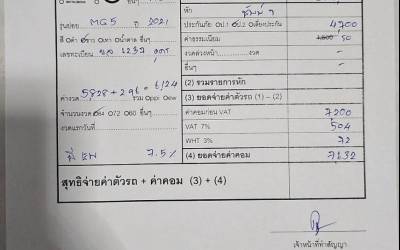 หัก ชั้น 1
รุ่นย่อย MG5 ปี 2021 ประกันภัย ป.1 ป.2 เดี่ยงประกัน 4,900
สี ดำ ขาว เทา น้ำตาล อื่นๆ ค่าธรรมเนียม 50
เลขทะเบียน 1237 อุดร งวดล่วงหน้า งวด -
อื่นๆ -
(2) รวมรายการหัก
ค่างวด 5828+296 6/24 รวม Oppi Oew (3) ยอดจ่ายค่าตัวรถ (1) - (2)
จำนวนงวด 84 O72 O60 อื่นๆ ค่าคอมก่อน VAT 7200
งวดแรกวันที่ VAT 7% 504
WHT 3% 72
7.5% (4) ยอดจ่ายค่าคอม 7132
สุทธิจ่ายค่าตัวรถ + ค่าคอม (3) + (4)
เจ้าหน้าที่ทำสัญญา